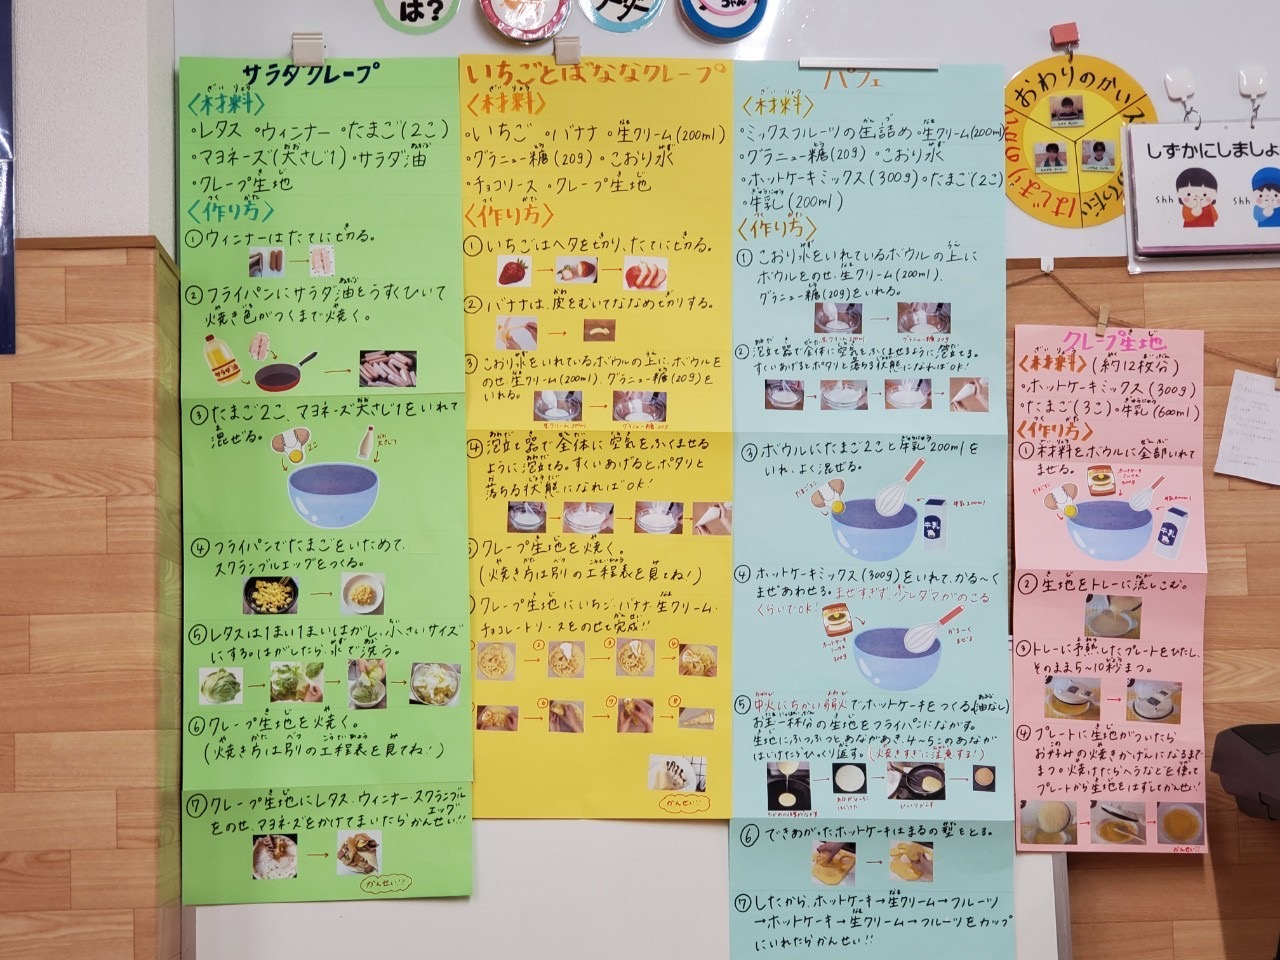 は?
ーター
ちゃん
サラダクレープ
〈材料〉
ざい りょう
・レタス ・ウィンナー ・たまご(2こ)
・マヨネーズ(大さじ1) ・サラダ油
・クレープ生地
〈作り方〉
つく かた
①ウィンナーはたてに切る。
②フライパンにサラダ油をうすくひいて
焼き色がつくまで焼く。
サラダ油
③たまご2こ、マヨネーズ大さじ1をいれて
混ぜる。
2こ
大さじ1
④フライパンでたまごをいためて、
スクランブルエッグをつくる。
⑤レタスは1まい1まいはがし、小さいサイズ
にする。はがしたら、水で洗う。
⑥クレープ生地を焼く。
(焼き方は別の工程表を見てね!)
⑦クレープ生地にレタス、ウィンナー、スクランブル
エッグ
をのせ、マヨネーズをかけてまいたらかんせい!!
かんせい!!
いちごとばななクレープ
〈材料〉
ざい りょう
・いちご ・バナナ ・生クリーム(200ml)
・グラニュー糖(20g) ・こおり水
・チョコソース ・クレープ生地
〈作り方〉
つく かた
①いちごはヘタを切り、たてに切る。
②バナナは、皮をむいてななめ切りする。
③こおり水をいれているボウルの上に、ボウルを
のせ、生クリーム(200ml)、グラニュー糖(20g)を
いれる。
生クリーム200ml
グラニュー糖20g
④泡立て器で全体に空気をふくませる
ように泡立てる。すくいあげるとポタリと
落ちる状態になればOK!
クレープ生地を焼く。
(焼き方は別の工程表を見てね!)
クレープ生地にいちご、バナナ、生クリーム、
チョコレートソースをのせて完成!!
かんせい!!
パフェ
〈材料〉
ざい りょう
・ミックスフルーツの缶詰め ・生クリーム(200ml)
・グラニュー糖(20g) ・こおり水
・ホットケーキミックス(300g) ・たまご(2こ)
・牛乳(200ml)
〈作り方〉
つく かた
①こおり水をいれているボウルの上に
ボウルをのせ、生クリーム(200ml)、
グラニュー糖(20g)をいれる。
生クリーム200ml
グラニュー糖20g
②泡立て器で全体に空気をふくませるように泡立てる。
すくいあげるとポタリと落ちる状態になればOK!
③ボウルにたまご2こと牛乳200mlを
いれ、よく混ぜる。
たまご2こ
牛乳200ml
牛乳
④ホットケーキミックス(300g)をいれて、かる〜く
まぜあわせる。まぜすぎず、少しダマがのこる
くらいでOK!
ホットケーキ
ミックス
300g
かる〜く
まぜる
⑤中火にちかい弱火でホットケーキをつくる。(油なし)
お玉一杯分の生地をフライパンにながす。
生地にふつふつとあながあき、4〜5このあなが
はじけたらひっくり返す。(焼きすぎに注意する!)
ひっくりがえす
⑥できあがったホットケーキはまるの型をとる。
⑦したから、ホットケーキ→生クリーム→フルーツ
→ホットケーキ→生クリーム→フルーツをカップ
にいれたらかんせい!!
おわりのかい
はじまりのかい
おてつだい
しずかにしましょ
Shh
Shh
クレープ生地
〈材料〉(約12枚分)
・ホットケーキミックス(300g)
・たまご(3こ) ・牛乳(600ml)
〈作り方〉
①材料をボウルに全部いれて
まぜる。
たまご3こ
ホットケーキ
ミックス
300g
牛乳600ml
牛乳
②生地をトレーに流しこむ。
③トレーに予熱したプレートをひたし、
そのまま5〜10秒まつ。
④プレートに生地がついたら
お好みの焼きかげんになるまで
まつ。焼けたらヘラなどを使って
プレートから生地をはずしてかんせい!
かんせい!!